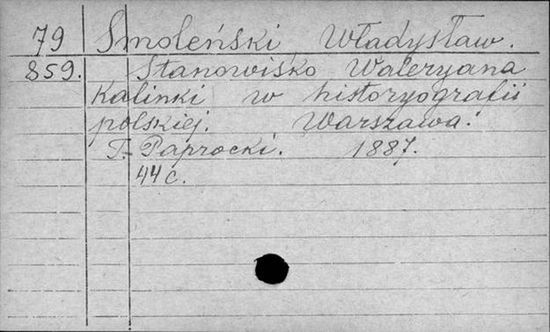 79 Smoleński Władysław.
859. Stanowisko Waleryana
Kalinki w historyografii
polskiej. Warszawa.
T. Paprocki. 1887.
44 c.